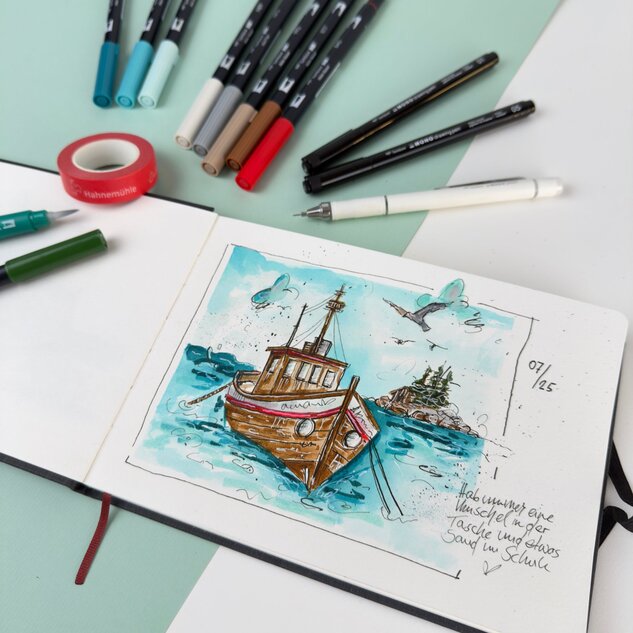 MONO
Hahnemühle
07/
25
Hab immer eine
Muschel in der
Tasche und etwas
Sand im Schuh